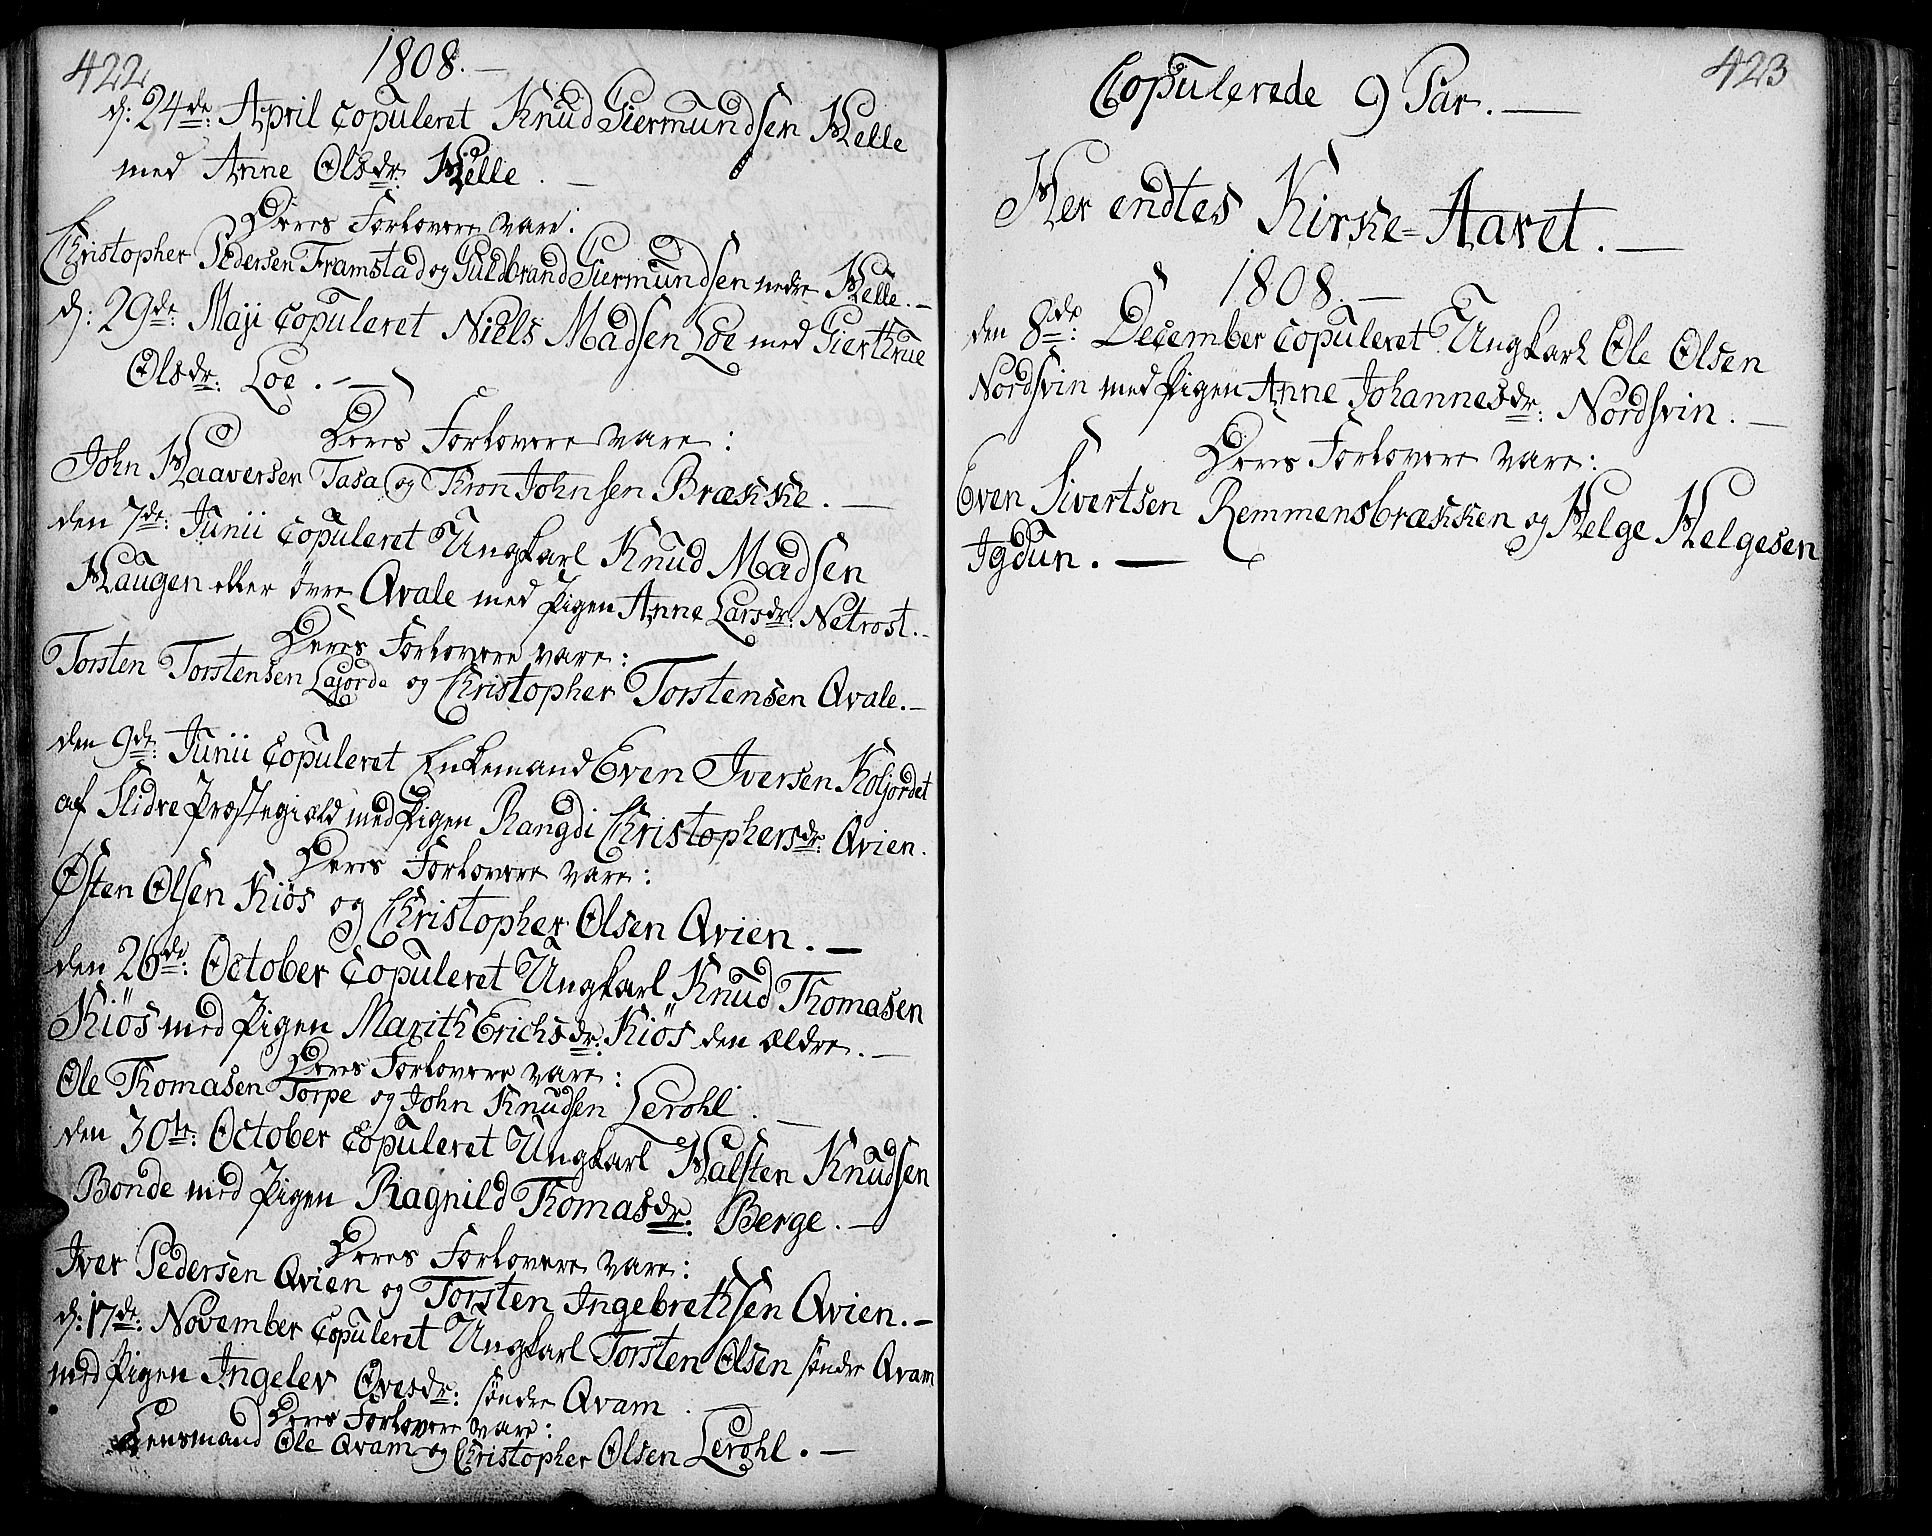 422
1808. —
d: 24de: April Copuleret Knud Giermundsen Helle
med Anne Olsdr: Helle. —
Deres Forlovere vare:
Christopher Pedersen Framstad og Guldbrand Giermundsen nedre Helle. —
d: 29de: Maji Copuleret Niels Madsen Loe med Gierthrue
Olsdr: Loe. —
Deres Forlovere vare:
John Haaversen Tasa og Thron Johnsen Brække. —
den 7de: Junii Copuleret Ungkarl Knud Madsen
Haugen eller övre Qvale med Pigen Anne Larsdr: Netrost. —
Deres Forlovere vare:
Torsten Torstensen Lajorde og Christopher Torstensen Qvale. —
den 9de: Junii Copuleret Enkemand Even Iversen Koljordet
af Slidre Præstegiæld med Pigen Rangdi Christophersdr: Qvien.
Deres Forlovere vare:
Østen Olsen Kiös og Christopher Olsen Qvien. —
den 26de: October Copuleret Ungkarl Knud Thomasen
Kiös med Pigen Marith Erichsdr: Kiös den ældre. —
Deres Forlovere vare:
Ole Thomasen Torpe og John Knudsen Lerohl. —
den 30te: October Copuleret Ungkarl Halsten Knudsen
Bonde med Pigen Ragnild Thomasdr: Berge. —
Deres Forlovere vare:
Iver Pedersen Qvien og Torsten Ingebrethsen Qvien. —
d: 17de: November Copuleret Ungkarl Torsten Olsen söndre Qvam
med Pigen Ingelev Ovesdr: söndre Qvam.
Deres Forlovere vare:
Lensmand Ole Qvam og Christopher Olsen Lerohl. —
423
Copulerede 9 Par. —
Her endtes Kirke-Aaret. —
1808. —
den 8de: December Copuleret Ungkarl Ole Olsen
Nordsvin med Pigen Anne Johannesdr: Nordsvin. —
Deres Forlovere vare:
Even Sivertsen Remmensbrækken og Helge Helgesen
Igdun. —